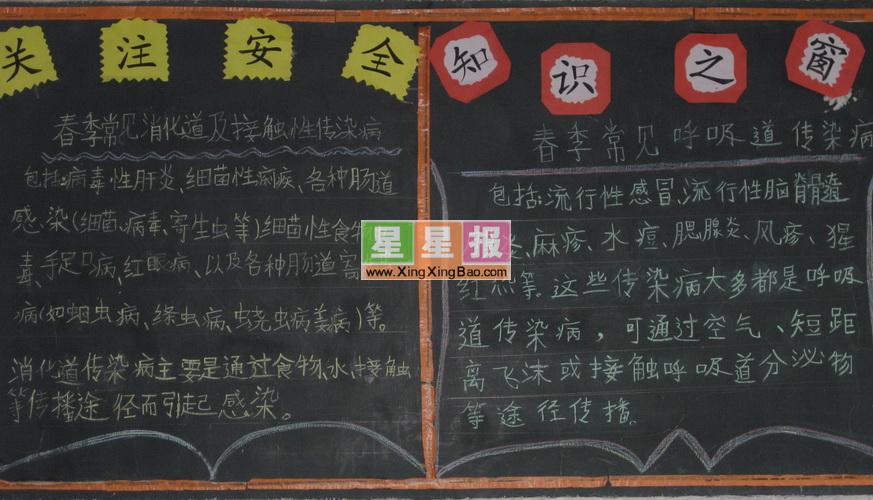 关注安全
春季常见消化道及接触性传染病
包括:病毒性肝炎、细菌性痢疾、各种肠道
感染(细菌、病毒、寄生虫等)细菌性食物
毒、手足口病、红眼病、以及各种肠道寄
病(如蛔虫病、绦虫病、蛲虫病、姜病)等。
消化道传染病主要是通过食物、水、接触
等传播途径而引起感染。
知识之窗
春季常见呼吸道传染病
包括:流行性感冒、流行性脑脊髓
炎、麻疹、水痘、腮腺炎、风疹、猩
红热等。这些传染病大多都是呼吸
道传染病，可通过空气、短距
离飞沫或接触呼吸道分泌物
等途径传播.
星星报
www.XingXingBao.com